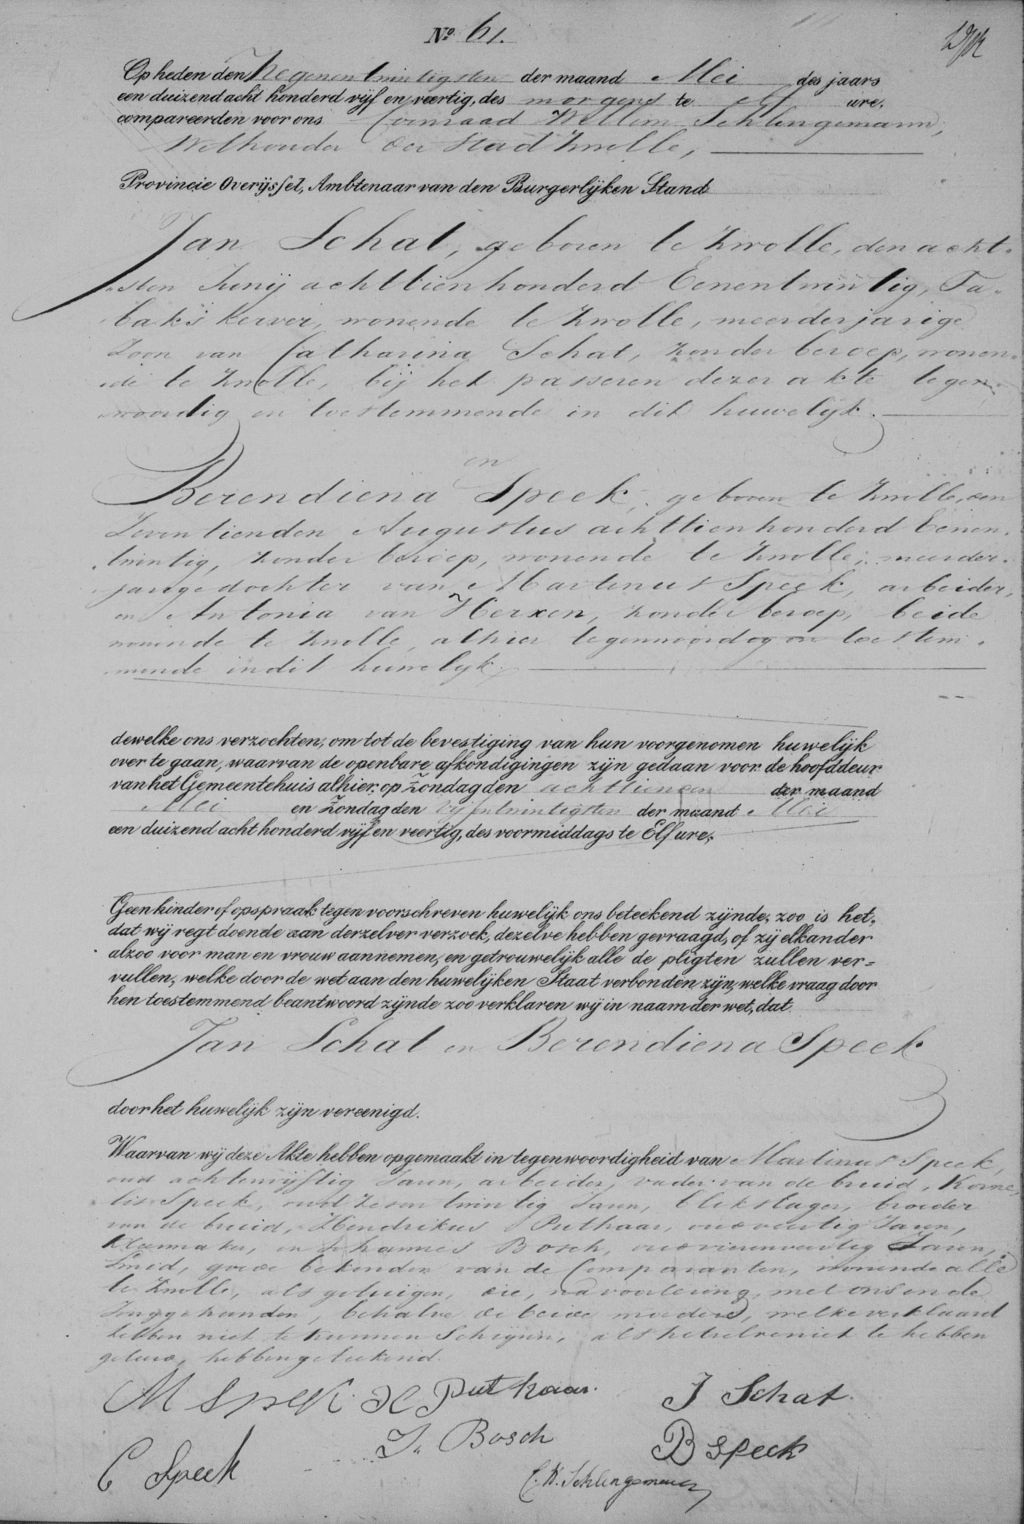 No. 61.
Op heden den Negenentwintigsten der maand Mei des jaars
een duizend acht honderd vijf en veertig, des morgens te elf ure,
compareerden voor ons Coenraad Willem Schlingemann,
Wethouder der Stad Zwolle,
Provincie Overijssel, Ambtenaar van den Burgerlijken Stand
Jan Schat, geboren te Zwolle, den acht-
sten Junij achttienhonderd Eenentwintig, Ta-
bakskerver, wonende te Zwolle, meerderjarige
Zoon van Catharina Schat, zonder beroep, wonen-
de te Zwolle, bij het passeren dezer akte tegen-
woordig en toestemmende in dit huwelijk.
en
Berendiena Speek, geboren te Zwolle, den
Zeventienden Augustus achttienhonderd Eenen-
twintig, zonder beroep, wonende te Zwolle, meerder-
jarige dochter van Martenus Speek, arbeider,
en Antonia van Herxen, zonder beroep, beide
wonende te Zwolle, alhier tegenwoordig en toestem-
mende in dit huwelijk.
dewelke ons verzochten, om tot de bevestiging van hun voorgenomen huwelijk
over te gaan, waarvan de openbare afkondigingen zijn gedaan voor de hoofddeur
van het Gemeentehuis alhier, op Zondag den achttienen der maand
Mei en Zondag den vijfentwintigsten der maand Mei
een duizend acht honderd vijf en veertig, des voormiddags te Elf ure;
Geen hinder of opspraak tegen voorschreven huwelijk ons beteekend zijnde, zoo is het,
dat wij regt doende aan derzelver verzoek, dezelve hebben gevraagd, of zij elkander
alzoo voor man en vrouw aannemen, en getrouwelijk alle de pligten zullen ver=
vullen, welke door de wet aan den huwelijken Staat verbonden zijn, welke vraag door
hen toestemmend beantwoord zijnde zoo verklaren wij in naam der wet, dat
Jan Schat en Berendiena Speek
door het huwelijk zijn vereenigd.
Waarvan wij deze Akte hebben opgemaakt in tegenwoordigheid van Martinus Speek,
oud achtenvijftig Jaren, arbeider, vader van de bruid, Korne-
lis Speek, oud zevenentwintig Jaren, blikslager, broeder
van de bruid, Hendrikus Puthaar, oud veertig Jaren,
Kleermaker, en Johannes Bosch, oud vierenveertig Jaren,
Smid, goede bekenden van de Comparanten, wonende alle
te Zwolle, als getuigen, die, na voorlezing, met ons en de
Jonggehuwden, behalve de beide moeders, welke verklaard
hebben niet te kunnen Schrijven, als hetzelve niet te hebben
geleerd, hebben geteekend.
M Speek H Puthaar. J Schat
J. Bosch B Speek
C Speek C. W. Schlingemann